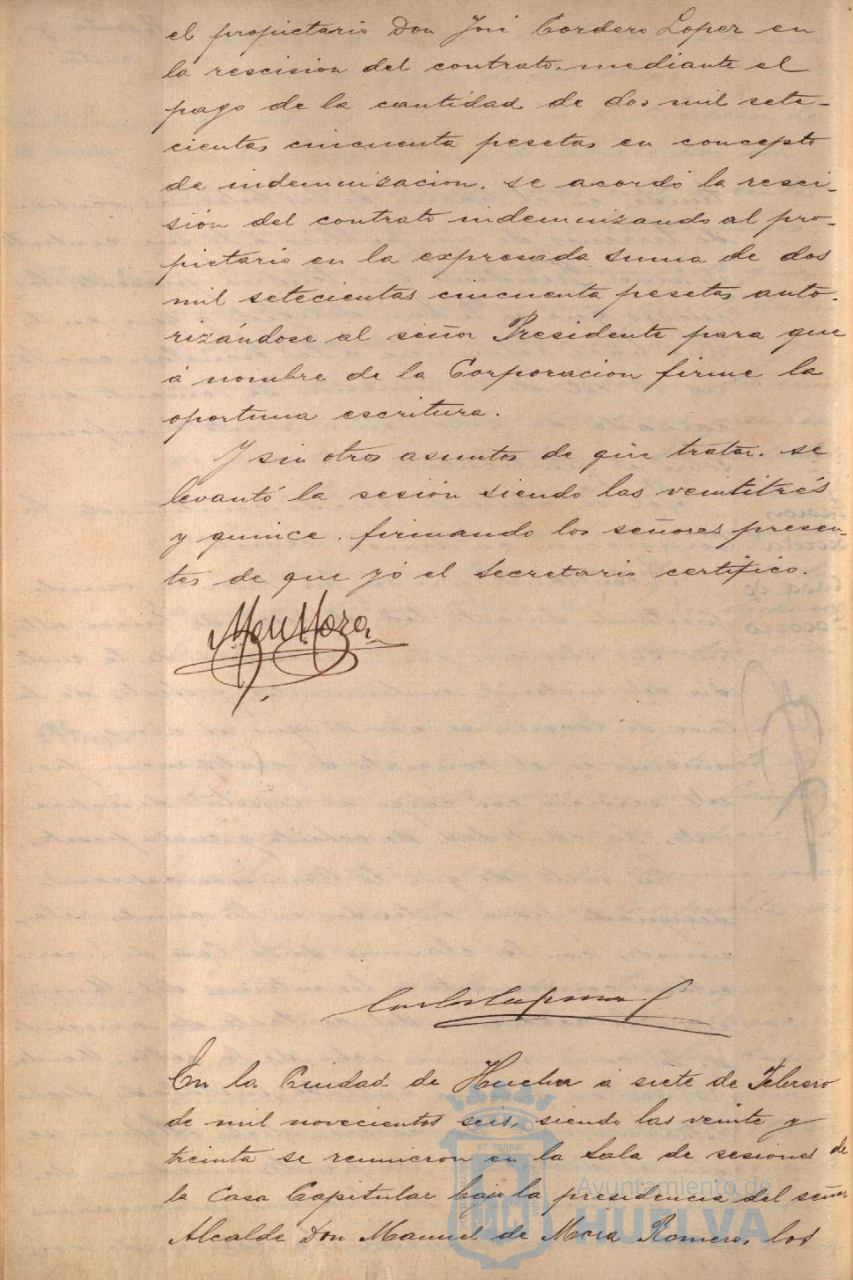 el propietario Don José Cordero Lopez en
la rescision del contrato mediante el
pago de la cantidad de dos mil sete-
cientas cincuenta pesetas en concepto
de indemnizacion, se acordó la resci-
sión del contrato indemnizando al pro-
pietario en la expresada suma de dos
mil setecientas cincuenta pesetas auto-
rizándose al señor Presidente para que
á nombre de la Corporacion firme la
oportuna escritura.
Y sin otros asuntos de que tratar, se
levantó la sesión siendo las veintitrés
y quince, firmando los señores presen-
tes de que yó el Secretario certifico.
En la Ciudad de Huelva á siete de Febrero
de mil novecientos seis, siendo las veinte y
treinta se reunieron en la Sala de sesiones de
la Casa Capitular bajo la presidencia del señor
Alcalde Don Manuel de Mora Romero, los
Ayuntamiento de
HUELVA